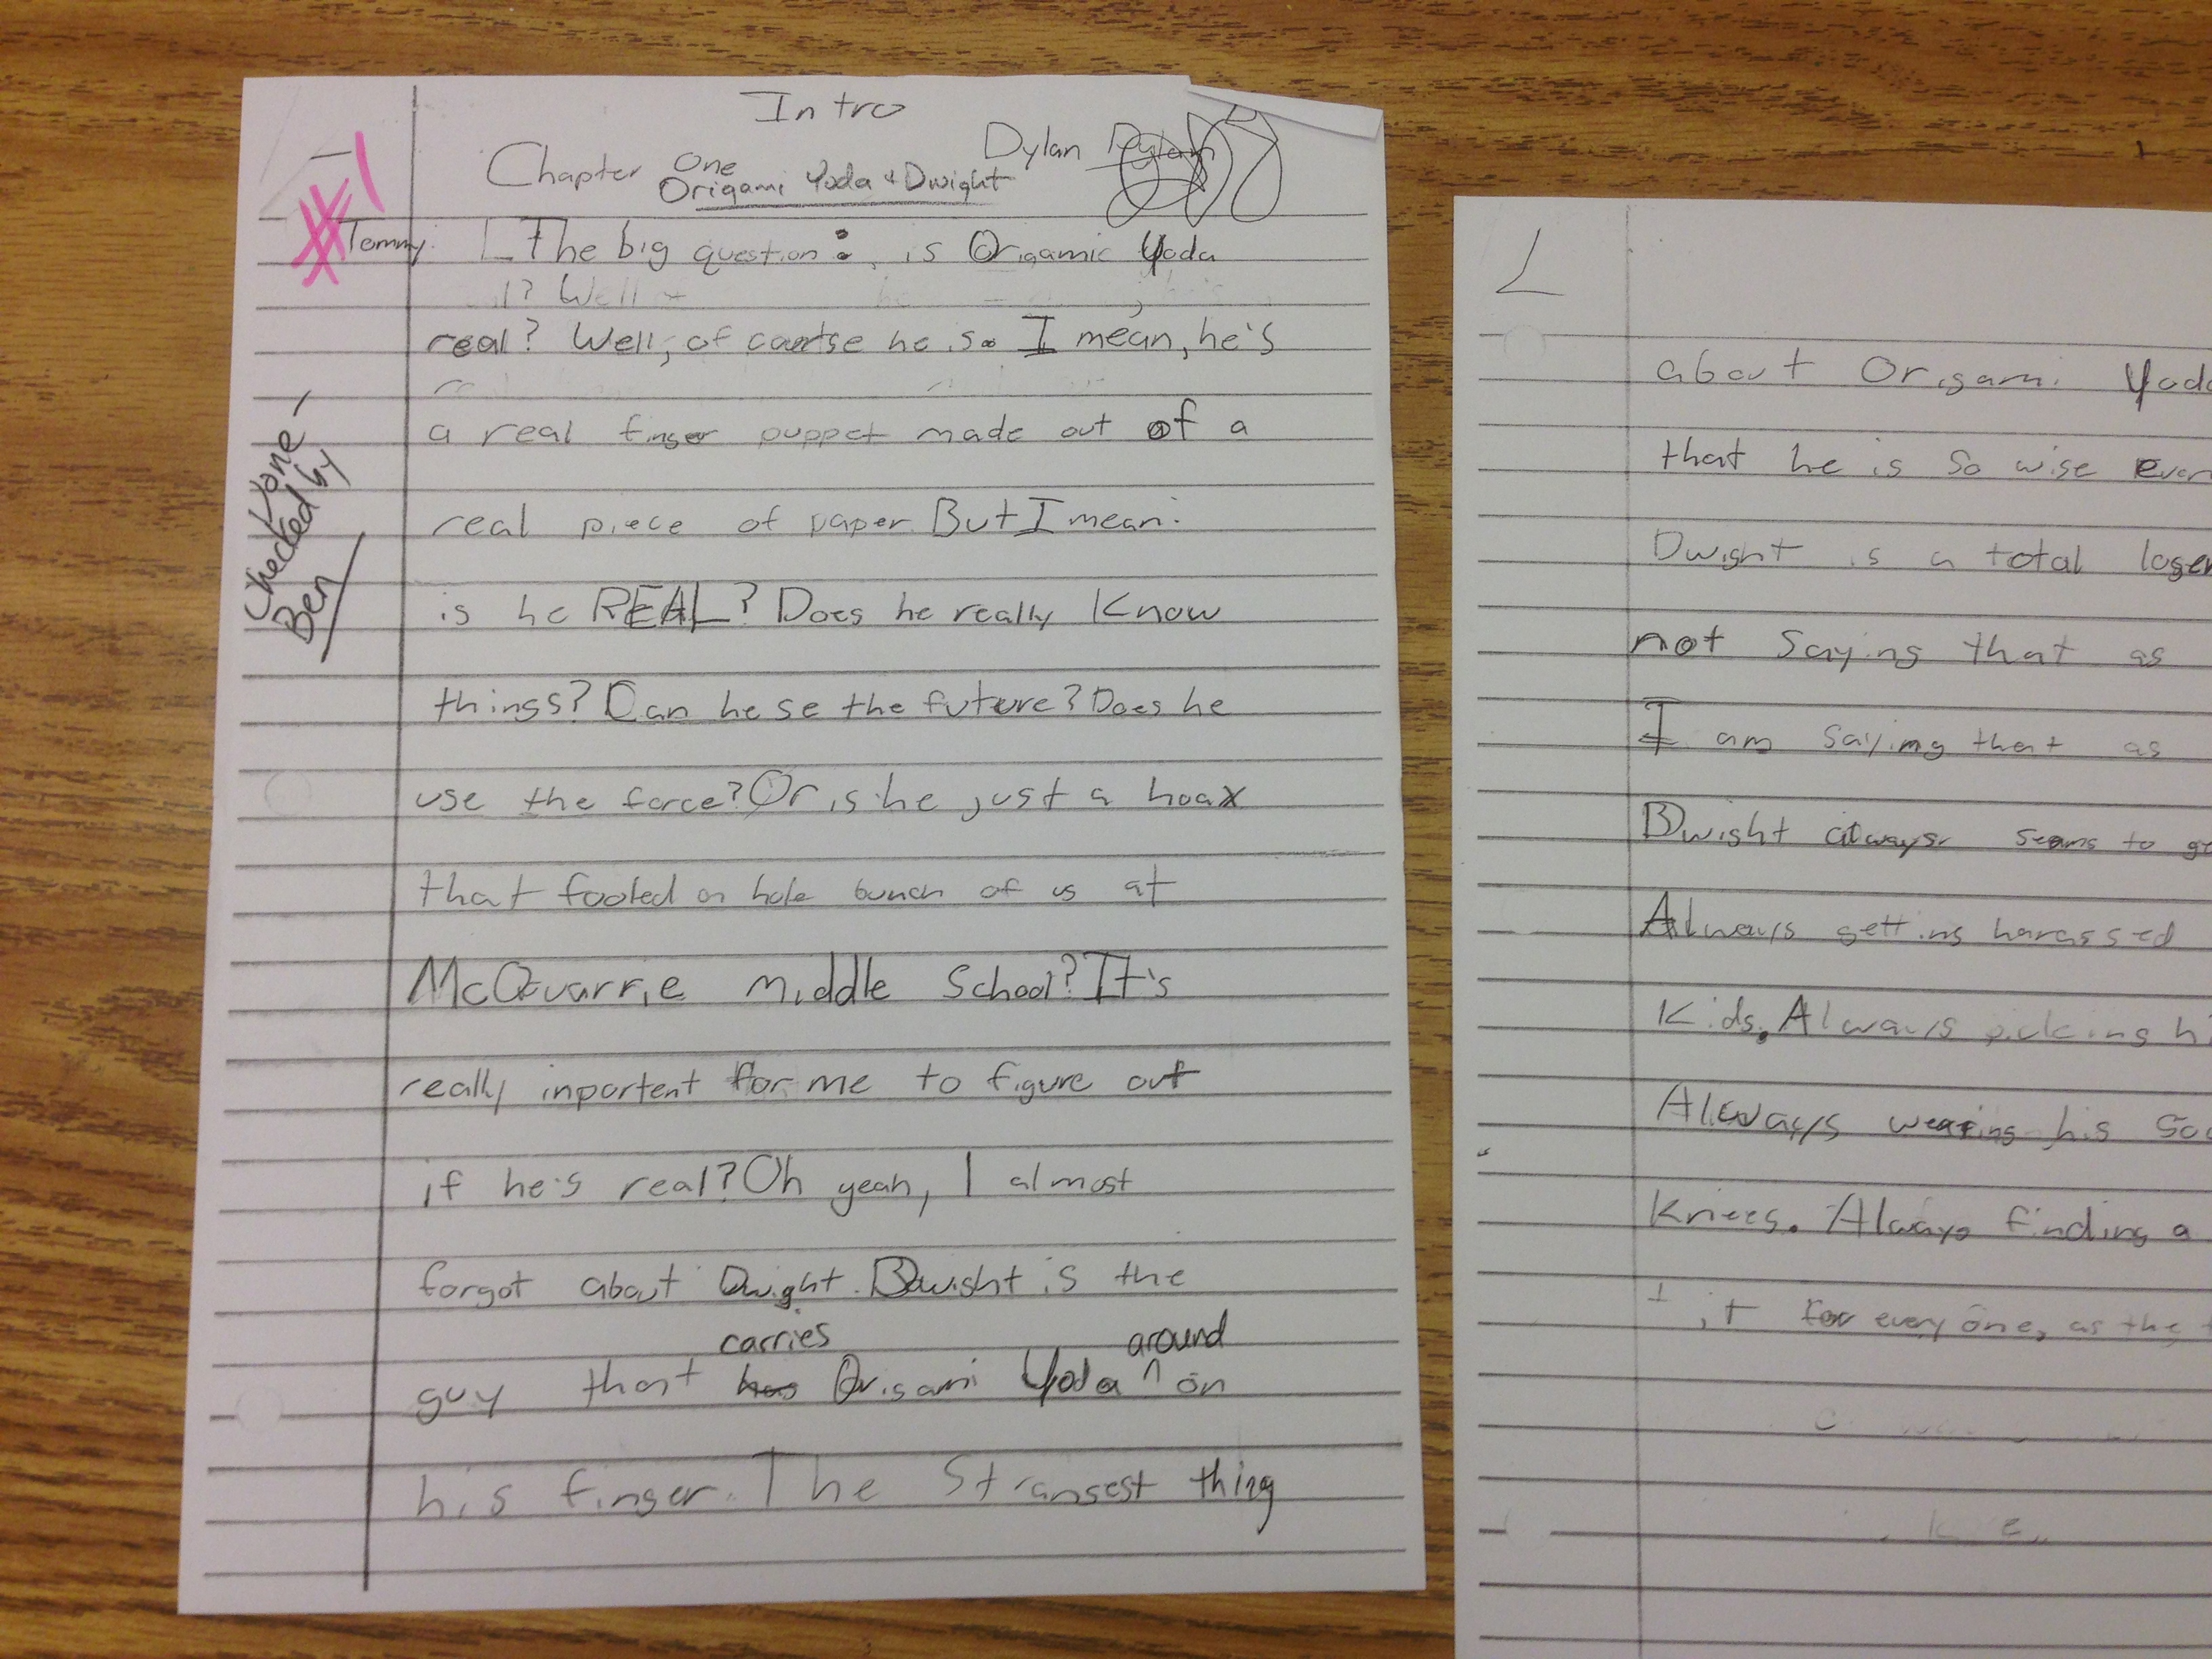 Intro
Dylan
Chapter One
Origami Yoda & Dwight
Tommy: The big question: is Origamic Yoda
real? Well, of cartse he is. I mean, he's
a real finger puppet made out of a
real piece of paper. But I mean:
is he REAL? Does he really Know
things? Can he se the future? Does he
use the force? Or is he just a hoax
that fooled on hole bunch of us at
McQuarrie middle School? It's
really inportent for me to figure out
if he's real? Oh yeah, I almost
forgot about Dwight. Dwight is the
carries around
guy that has Origami Yoda ^ on
his finger. The Stransest thing
Done,
checked by
Ben
about Origami
that he is So wise
Dwight is a total
not Saying that as
I am saling that as
Dwight always seams to
Always gettins harassed
Kids. Always picking
Allways wearing his
Kniees. Always finding a
it for every one, as the